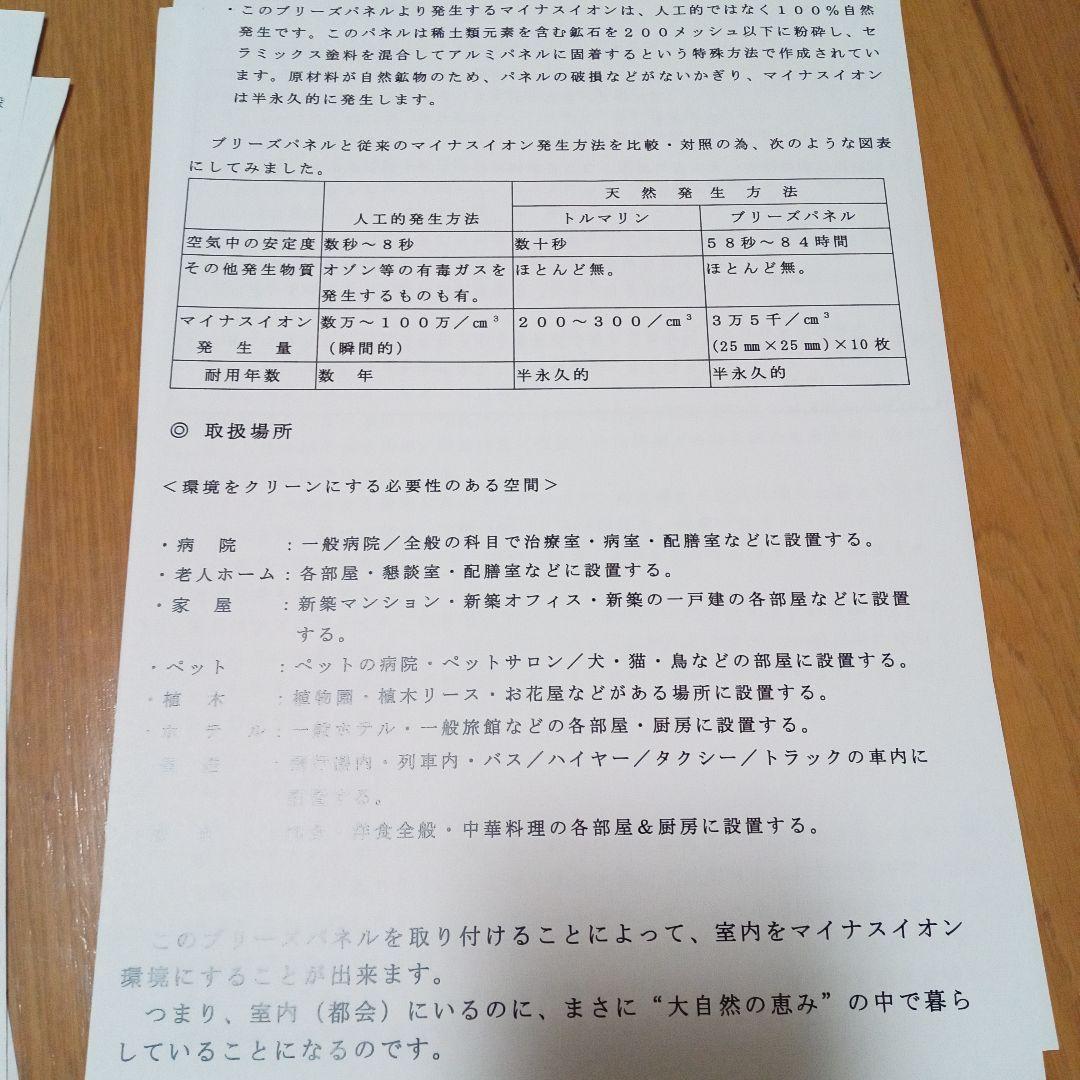 ・このブリーズパネルより発生するマイナスイオンは、人工的ではなく１００％自然
発生です。このパネルは稀土類元素を含む鉱石を２００メッシュ以下に粉砕し、セ
ラミックス塗料を混合してアルミパネルに固着するという特殊方法で作成されてい
ます。原材料が自然鉱物のため、パネルの破損などがないかぎり、マイナスイオン
は半永久的に発生します。
ブリーズパネルと従来のマイナスイオン発生方法を比較・対照の為、次のような図表
にしてみました。
天然発生方法
人工的発生方法 トルマリン ブリーズパネル
空気中の安定度 数秒～８秒 数十秒 ５８秒～８４時間
その他発生物質 オゾン等の有毒ガスを ほとんど無。 ほとんど無。
発生するものも有。
マイナスイオン 数万～１００万／㎝³ ２００～３００／㎝³ ３万５千／㎝³
発生量 （瞬間的） (25㎜×25㎜)×10枚
耐用年数 数年 半永久的 半永久的
◎ 取扱場所
＜環境をクリーンにする必要性のある空間＞
・病院 ：一般病院／全般の科目で治療室・病室・配膳室などに設置する。
・老人ホーム：各部屋・懇談室・配膳室などに設置する。
・家屋 ：新築マンション・新築オフィス・新築の一戸建の各部屋などに設置
する。
・ペット ：ペットの病院・ペットサロン／犬・猫・鳥などの部屋に設置する。
・植木 ：植物園・植木リース・お花屋などがある場所に設置する。
・ホテル：一般ホテル・一般旅館などの各部屋・厨房に設置する。
：機内・列車内・バス／ハイヤー／タクシー／トラックの車内に
する。
洋食全般・中華料理の各部屋＆厨房に設置する。
このブリーズパネルを取り付けることによって、室内をマイナスイオン
環境にすることが出来ます。
つまり、室内（都会）にいるのに、まさに“大自然の恵み”の中で暮ら
していることになるのです。